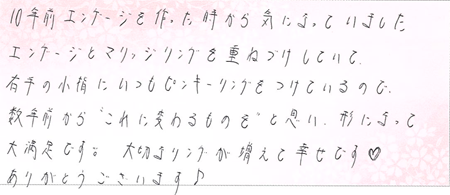 10年前エンゲージを作った時から気になっていました
エンゲージとマリッジリングを重ねづけしていて、
右手の小指にいつもピンキーリングをつけているので、
数年前から"これに変わるものを"と思い、形になって
大満足です。 大切なリングが増えて幸せです♡
ありがとうございます♪